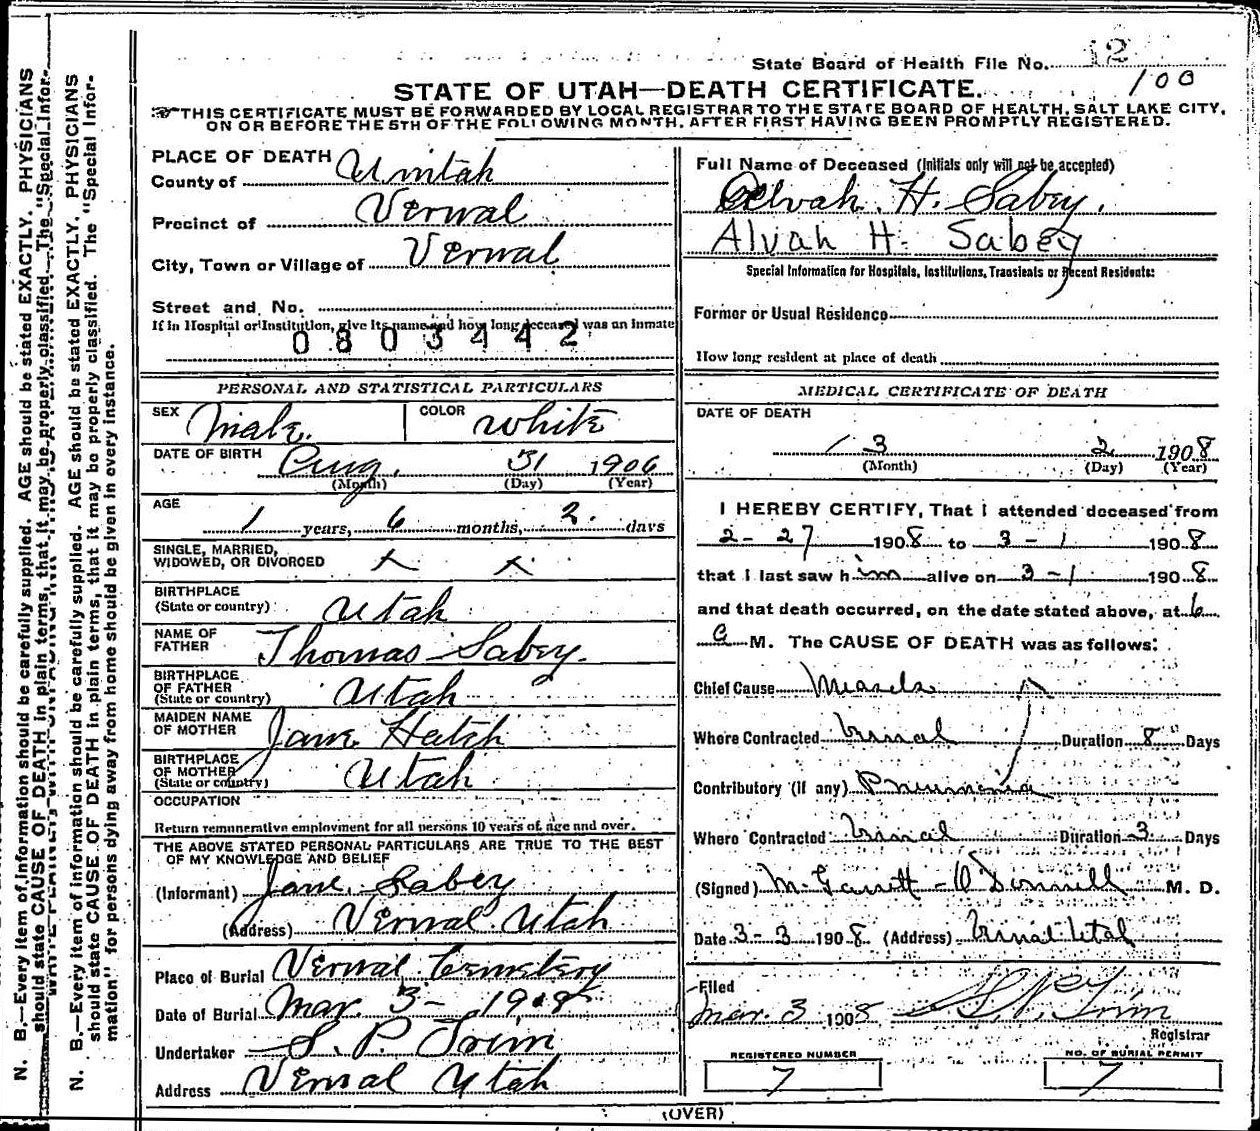 State Board of Health File No. 12
100
STATE OF UTAH—DEATH CERTIFICATE.
THIS CERTIFICATE MUST BE FORWARDED BY LOCAL REGISTRAR TO THE STATE BOARD OF HEALTH, SALT LAKE CITY,
ON OR BEFORE THE 5TH OF THE FOLLOWING MONTH, AFTER FIRST HAVING BEEN PROMPTLY REGISTERED.
PLACE OF DEATH
County of Uintah
Precinct of Vernal
City, Town or Village of Vernal
Street and No.
If in Hospital or Institution, give its name and how long deceased was an inmate
0803442
PERSONAL AND STATISTICAL PARTICULARS
SEX Male. COLOR White
DATE OF BIRTH Aug. 31 1906
(Month) (Day) (Year)
AGE
1 years, 6 months, 2. days
SINGLE, MARRIED,
WIDOWED, OR DIVORCED x x
BIRTHPLACE
(State or country) Utah
NAME OF
FATHER Thomas Sabey.
BIRTHPLACE
OF FATHER
(State or country) Utah
MAIDEN NAME
OF MOTHER Jane Hatch
BIRTHPLACE
OF MOTHER
(State or country) Utah
OCCUPATION
Return remunerative employment for all persons 10 years of age and over.
THE ABOVE STATED PERSONAL PARTICULARS ARE TRUE TO THE BEST
OF MY KNOWLEDGE AND BELIEF
(Informant) Jane Sabey
(Address) Vernal Utah
Place of Burial Vernal Cemetery
Date of Burial Mar. 3- 1908
Undertaker S. P. Trim
Address Vernal Utah
Full Name of Deceased (Initials only will not be accepted)
Alvah. H. Sabey.
Alvah H. Sabey
Special Information for Hospitals, Institutions, Transients or Recent Residents:
Former or Usual Residence
How long resident at place of death
MEDICAL CERTIFICATE OF DEATH
DATE OF DEATH
3 2 1908
(Month) (Day) (Year)
I HEREBY CERTIFY, That I attended deceased from
2-27 1908 to 3-1 1908
that I last saw him alive on 3-1 1908
and that death occurred, on the date stated above, at 6
a M. The CAUSE OF DEATH was as follows:
Chief Cause Measels
Where Contracted Vernal Duration 8 Days
Contributory (If any) Pneumonia
Where Contracted Vernal Duration 3 Days
(Signed) M. Garrett-O'Donnell M. D.
Date 3-3 1908 (Address) Vernal Utah
Filed
Mar. 3 1908 S. P. Trim
Registrar
REGISTERED NUMBER
7
NO. OF BURIAL PERMIT
7
(OVER)
N. B.—Every item of information should be carefully supplied. AGE should be stated EXACTLY. PHYSICIANS
should state CAUSE OF DEATH in plain terms, that it may be properly classified. The "Special Infor-
N. B.—Every item of information should be carefully supplied. AGE should be stated EXACTLY. PHYSICIANS
should state CAUSE OF DEATH in plain terms, that it may be properly classified. The "Special Infor-
mation" for persons dying away from home should be given in every instance.